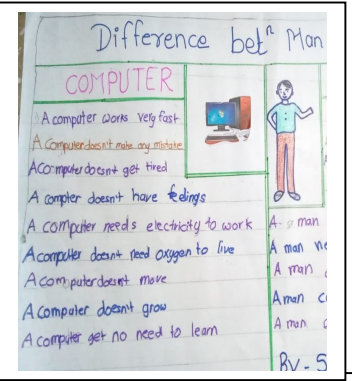 Difference betⁿ Man
COMPUTER
A computer works very fast
A Computer doesn't make any mistake
A Cormputer doesnt get tired
A compter doesn't have feelings
A computer needs electricity to work
A computer doesnt need oxygen to live
A computer doesnt move
A Computer doesn't grow
A computer get no need to learn
A man
A man ne
A man
A man c
A man
By - S